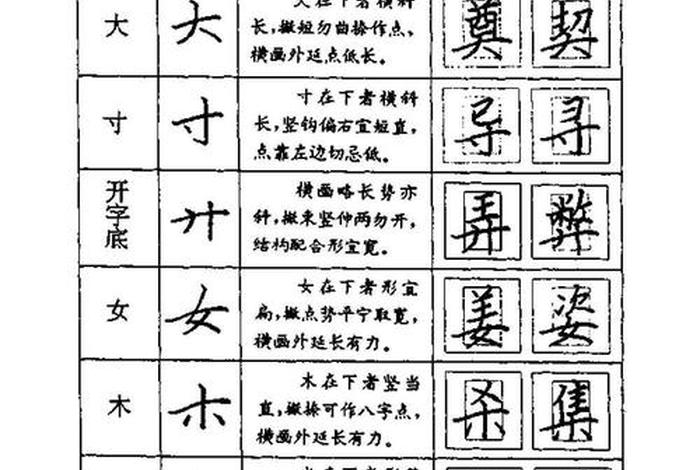 大
大
大在下者横斜
长，撇短勿曲捺作点，
横画外延点低长。
奠 契
寸
寸
寸在下者横斜
长，竖钩偏右宜短直，
点靠左边切忌低。
导 寻
开字底
廾
横画略长势亦
斜，撇来竖伸两勿开，
结构配合形宜宽。
弄 弊
女
女
女在下者形宜
扁，撇点势平宁取宽，
横画外延长有力。
姜 姿
木
木
木在下者竖当
直，撇捺可作八字点，
横画外延长有力。
杀 集